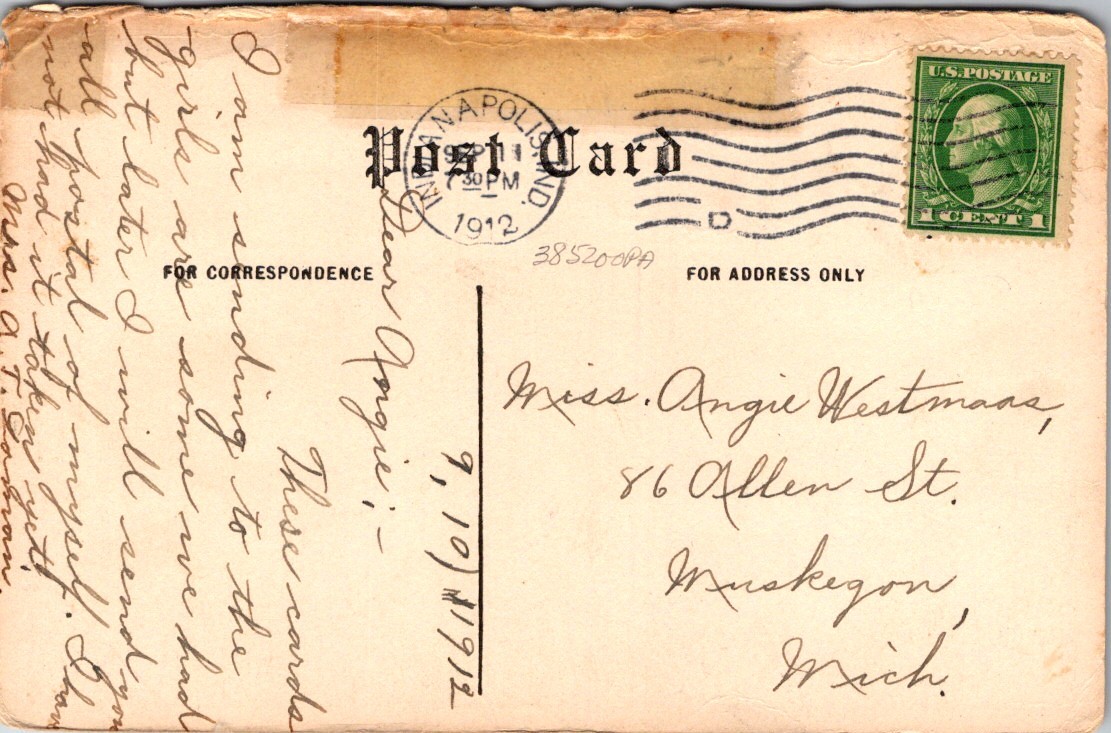 U.S. POSTAGE
1 CENT 1
INDIANAPOLIS, IND.
SEP 11
7 30 PM
1912
D
Post Card
385200PA
FOR CORRESPONDENCE
FOR ADDRESS ONLY
9, 10) 1912
Dear Angie:-
These cards
I am sending to the
girls are some we had
but later I will send you
all postal of myself. I have
not had it taken yet.
Mrs. A. T.
Miss. Angie Westmaas,
86 Allen St.
Muskegon,
Mich.